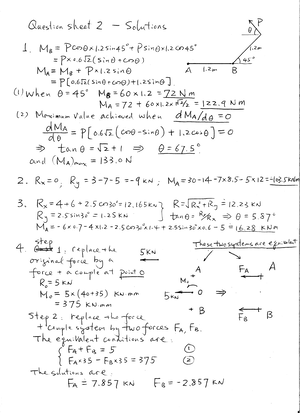 Question sheet 2 — Solutions
1. MB = Pcosθ×1.2sin45° + Psinθ×1.2cos45°
= P×0.6√2(sinθ+cosθ)
MA = MB + P×1.2sinθ
= P[0.6√2(sinθ+cosθ)+1.2sinθ]
P
θ
1.2m
45°
A 1.2m B
(1) When θ=45° MB = 60×1.2 = 72 Nm
MA = 72 + 60×1.2×√2/2 = 122.9 Nm
(2) Maximum value achieved when dMA/dθ = 0
dMA/dθ = P[0.6√2(cosθ-sinθ)+1.2cosθ] = 0
⇒ tanθ = √2+1 ⇒ θ = 67.5°
and (MA)max = 133.0 N
2. Rx = 0, Ry = 3-7-5 = -9 kN, MA = 30-14-7×8.5-5×12
3. Rx = 4+6+2.5cos30° = 12.165 kN
R = √Rx²+Ry² = 12.23 kN
Ry = 2.5sin30° = 1.25 kN
tanθ = Ry/Rx ⇒ θ = 5.87°
= 16.28 kNm
4. Step 1: replace the
original force by a
force + a couple at point O
5kN
These two systems are equivalent
R = 5 kN
Mo = 5×(40+35) kN·mm
= 375 kN·mm
A
Mo
5kN
O
⇒
B
A
FA
FB
B
Step 2: replace the force
+ couple system by two forces FA, FB.
The equivalent conditions are:
FA + FB = 5 ①
FA×35 - FB×35 = 375 ②
The solutions are:
FA = 7.857 kN FB = -2.857 kN